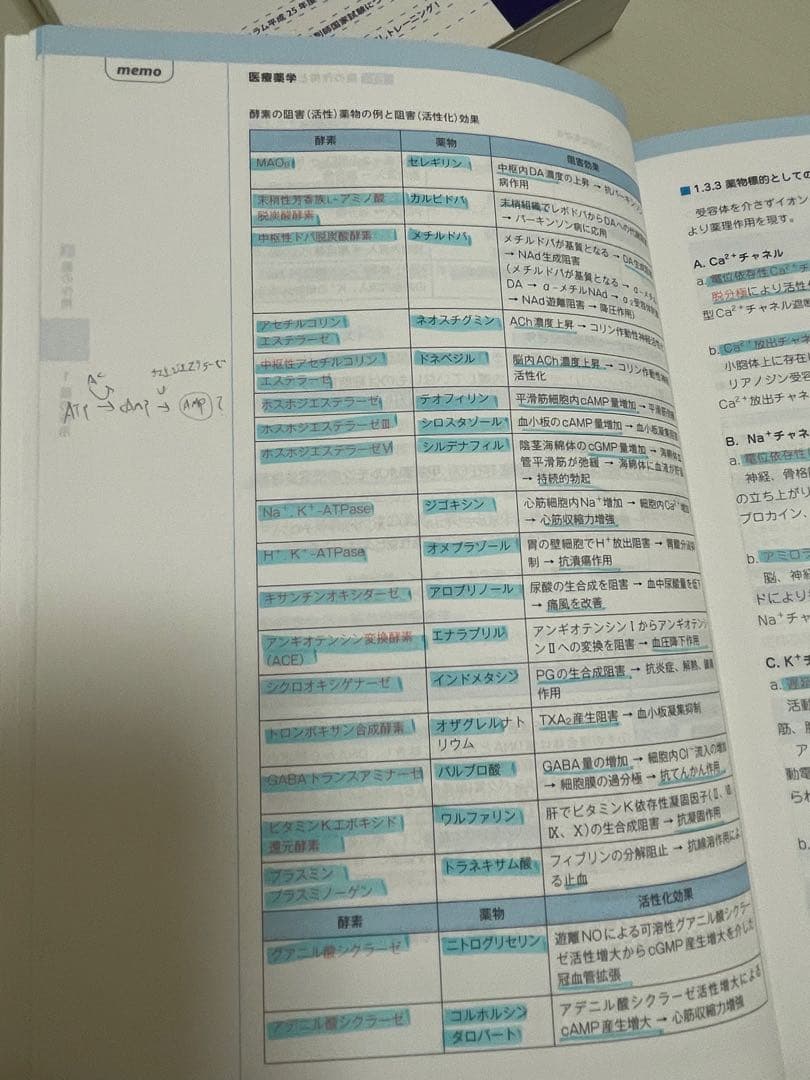 ラム平成 25年度
memo
医療薬学
酵素の阻害（活性）薬物の例と阻害（活性化）効果
酵素 薬物 阻害効果
MAOB セレギリン 中枢内DA濃度の上昇 → 抗パーキンソン
病作用
末梢性芳香族L-アミノ酸 カルビドパ 末梢組織でレボドパからDAへの代謝
脱炭酸酵素 → パーキンソン病に応用
中枢性ドパ脱炭酸酵素 メチルドパ メチルドパが基質となる → DA生成
→ NAd生成阻害
（メチルドパが基質となる → α-メチル
DA → α-メチルNAd → α₂受容体
→ NAd遊離阻害 → 降圧作用）
アセチルコリン ネオスチグミン ACh濃度上昇 → コリン作動性神経
エステラーゼ
中枢性アセチルコリン ドネペジル 脳内ACh濃度上昇 → コリン作動
エステラーゼ 活性化
ホスホジエステラーゼ テオフィリン 平滑筋細胞内cAMP量増加 → 平滑筋
ホスホジエステラーゼⅢ シロスタゾール 血小板のcAMP量増加 → 血小板凝集
ホスホジエステラーゼV シルデナフィル 陰茎海綿体のcGMP量増加 → 海綿体
管平滑筋が弛緩 → 海綿体に血液が貯
→ 持続的勃起
Na⁺, K⁺-ATPase ジゴキシン 心筋細胞内Na⁺増加 → 細胞内Ca²⁺増加
→ 心筋収縮力増強
H⁺, K⁺-ATPase オメプラゾール 胃の壁細胞でH⁺放出阻害 → 胃酸分泌
制 → 抗潰瘍作用
キサンチンオキシダーゼ アロプリノール 尿酸の生合成を阻害 → 血中尿酸量を低下
→ 痛風を改善
アンギオテンシン変換酵素 エナラプリル アンギオテンシンⅠからアンギオテンシ
(ACE) ンⅡへの変換を阻害 → 血圧降下作用
シクロオキシゲナーゼ インドメタシン PGの生合成阻害 → 抗炎症、解熱、鎮痛
作用
トロンボキサン合成酵素 オザグレルナト TXA₂産生阻害 → 血小板凝集抑制
リウム
GABAトランスアミナーゼ バルプロ酸 GABA量の増加 → 細胞内Cl⁻流入の増加
→ 細胞膜の過分極 → 抗てんかん作用
ビタミンKエポキシド ワルファリン 肝でビタミンK依存性凝固因子（Ⅱ、Ⅶ、
還元酵素 Ⅸ、Ⅹ）の生合成阻害 → 抗凝固作用
プラスミン トラネキサム酸 フィブリンの分解阻止 → 抗線溶作用によ
プラスミノーゲン る止血
酵素 薬物 活性化効果
グアニル酸シクラーゼ ニトログリセリン 遊離NOによる可溶性グアニル酸シクラー
ゼ活性増大からcGMP産生増大を介した
冠血管拡張
アデニル酸シクラーゼ コルホルシン アデニル酸シクラーゼ活性増大による
ダロパート cAMP産生増大 → 心筋収縮力増強
AC
ATP → cAMP → AMP ?
1.3.3 薬物標的としての
受容体を介さずイオン
より薬理作用を現す。
A. Ca²⁺チャネル
a. 電位依存性Ca²⁺チ
脱分極により活性
型Ca²⁺チャネル遮
b. Ca²⁺放出チャネ
小胞体上に存在
リアノジン受容
Ca²⁺放出チャネ
B. Na⁺チャネ
a. 電位依存性
神経、骨格
の立ち上がり
プロカイン、
b. アミロラ
脳、神経
ドにより
Na⁺チャ
C. K⁺チ
a. 遅延
活動
筋、
ア
動電
られ
b.